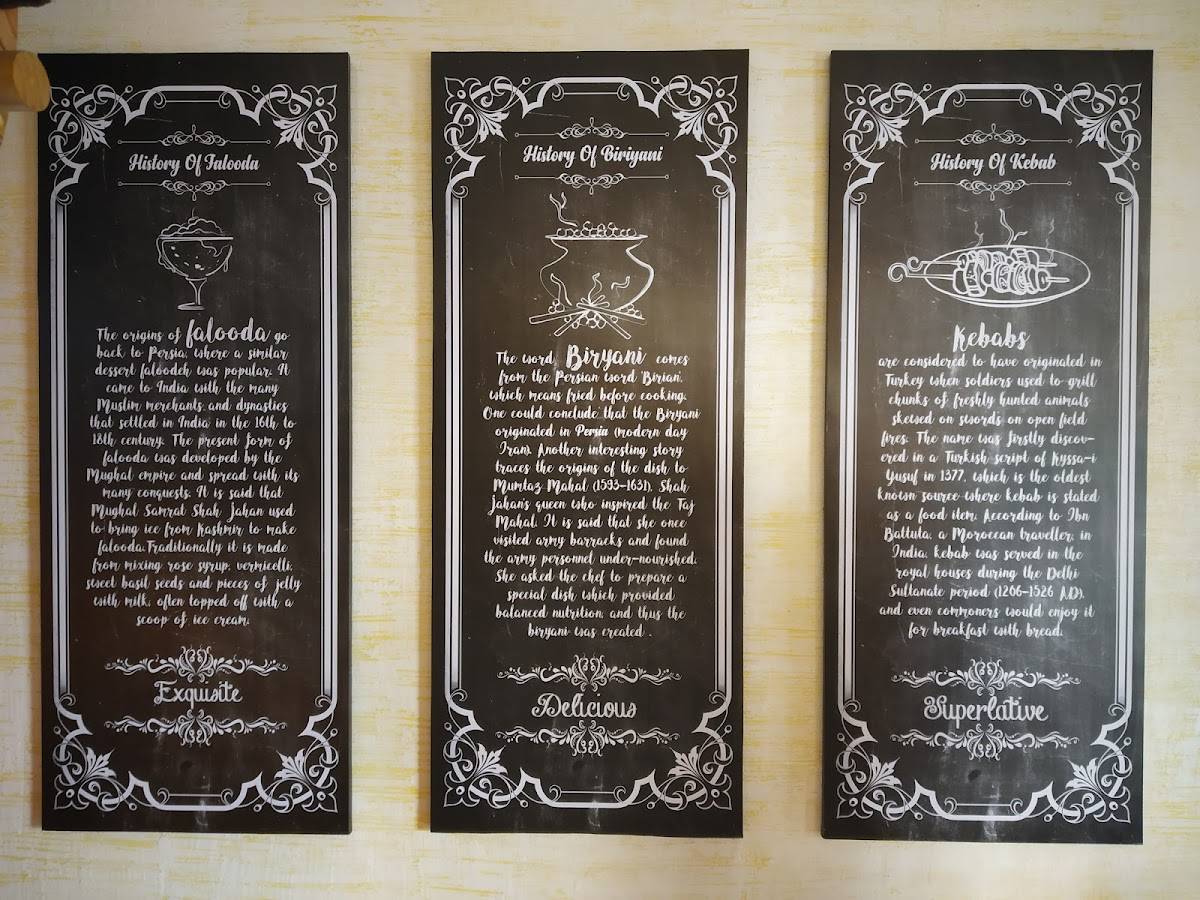 History Of Falooda
The origins of falooda go
back to Persia, where a similar
dessert faloodeh was popular. It
came to India with the many
Muslim merchants and dynasties
that settled in India in the 16th to
18th century. The present form of
falooda was developed by the
Mughal empire and spread with its
many conquests. It is said that
Mughal Samrat Shah Jahan used
to bring ice from Kashmir to make
falooda.Traditionally it is made
from mixing rose syrup, vermicelli,
sweet basil seeds and pieces of jelly
with milk, often topped off with a
scoop of ice cream.
Exquisite
History Of Biriyani
The word, Biryani comes
from the Persian word 'Birian',
which means fried before cooking.
One could conclude that the Biryani
originated in Persia (modern day
Iran). Another interesting story
traces the origins of the dish to
Mumtaz Mahal (1593-1631), Shah
Jahan's queen who inspired the Taj
Mahal. It is said that she once
visited army barracks and found
the army personnel under-nourished.
She asked the chef to prepare a
special dish which provided
balanced nutrition, and thus the
biryani was created .
Delicious
History Of Kebab
Kebabs
are considered to have originated in
Turkey when soldiers used to grill
chunks of freshly hunted animals
skewed on swords on open field
fires. The name was firstly discov-
ered in a Turkish script of Kyssa-i
Yusuf in 1377, which is the oldest
known source where kebab is stated
as a food item. According to Ibn
Battuta, a Moroccan traveller, in
India, kebab was served in the
royal houses during the Delhi
Sultanate period (1206-1526 AD),
and even commoners would enjoy it
for breakfast with bread.
Superlative